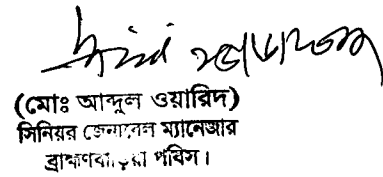 (মোঃ আব্দুল ওয়ারিদ)
সিনিয়র জেনারেল ম্যানেজার
ব্রাহ্মণবাড়িয়া পবিস।